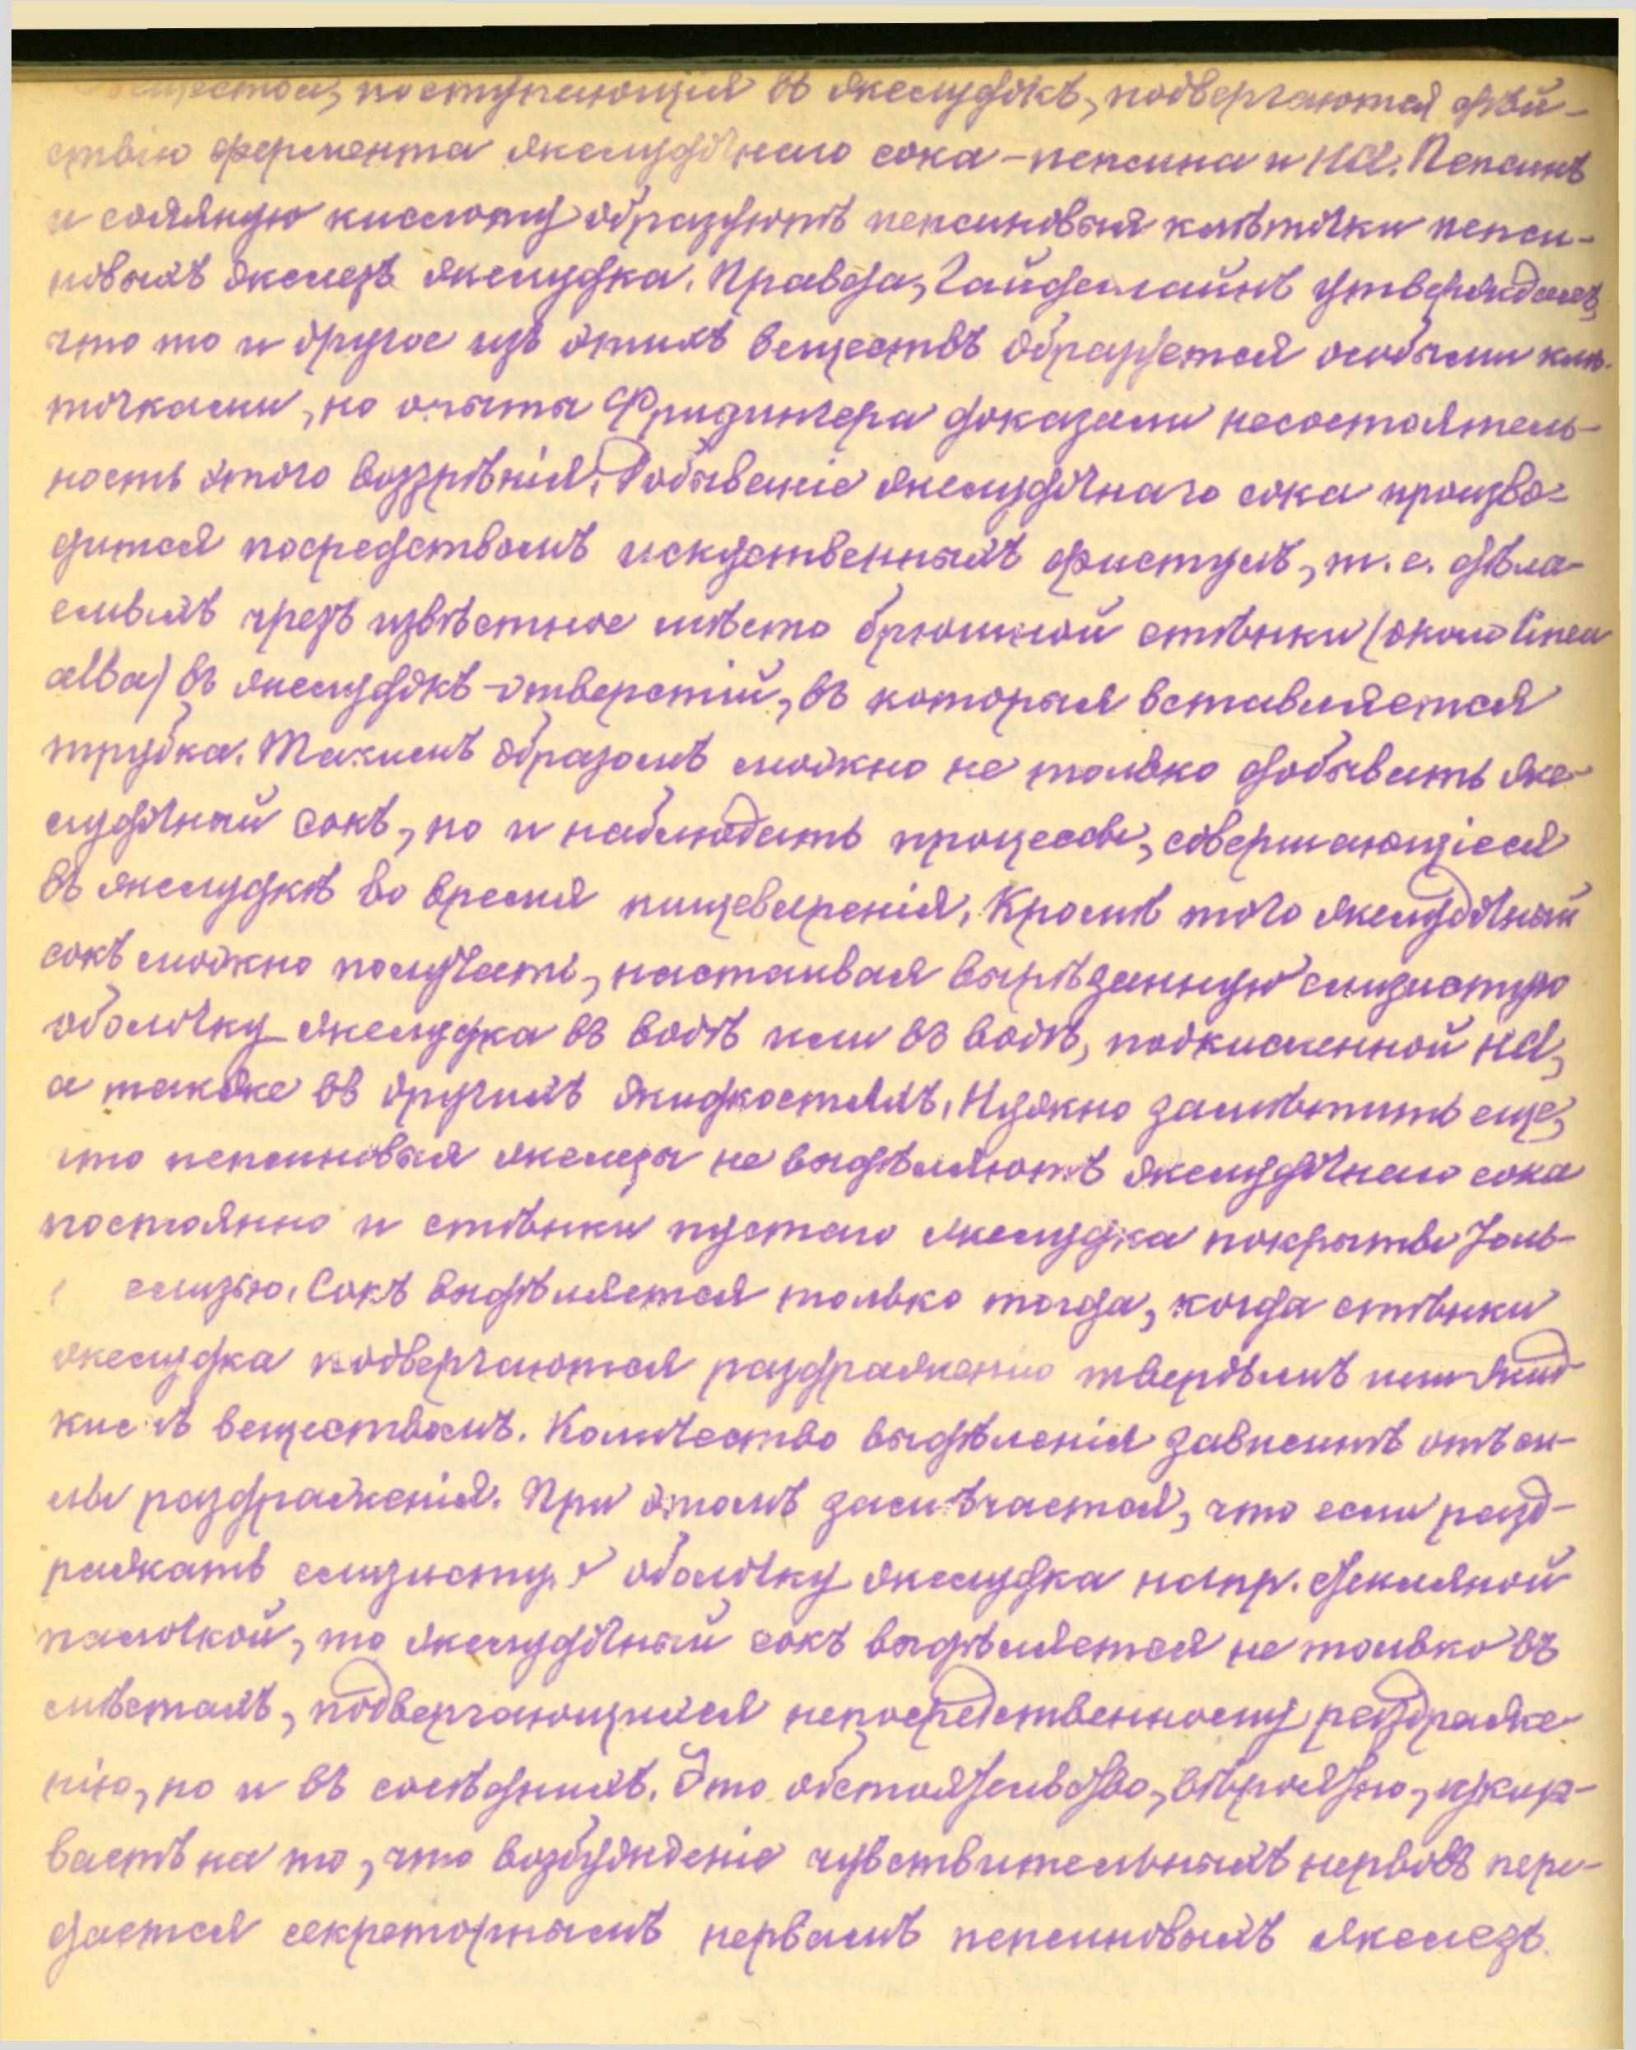 вещества, поступающія въ желудокъ, подвергаются дѣй-
ствію фермента желудочнаго сока – пепсина и HCl. Пепсинъ
и соляную кислоту образуютъ пепсиновыя клѣточки пепси-
новыхъ железъ желудка. Правда, Гайденгайнъ утверждалъ,
что то и другое изъ этихъ веществъ образуется особыми клѣ-
точками, но опыты Фридингера доказали несостоятель-
ность этого воззрѣнія. Добываніе желудочнаго сока произво-
дится посредствомъ искуственныхъ фистулъ, т. е. дѣла-
емыхъ чрезъ извѣстное мѣсто брюшной стѣнки (около linea
alba) въ желудокъ отверстій, въ которыя вставляется
трубка. Такимъ образомъ можно не только добывать же-
лудочный сокъ, но и наблюдать процессы, совершающіеся
въ желудкѣ во время пищеваренія. Кромѣ того желудочный
сокъ можно получать, настаивая вырѣзанную слизистую
оболочку желудка въ водѣ или въ водѣ, подкисленной HCl,
а также въ другихъ жидкостяхъ. Нужно замѣтить еще,
что пепсиновыя железы не выдѣляютъ желудочнаго сока
постоянно и стѣнки пустаго желудка покрыты толь-
слизью. Сокъ выдѣляется только тогда, когда стѣнки
желудка подвергаются раздраженію твердымъ или жид-
кимъ веществомъ. Количество выдѣленія зависитъ отъ си-
лы раздраженія. При этомъ замѣчается, что если разд-
ражать слизистую оболочку желудка напр. стекляной
палочкой, то желудочный сокъ выдѣляется не только въ
мѣстахъ, подвергающихся непосредственному раздраже-
нію, но и въ сосѣднихъ. Это обстоятельство, вѣроятно, указы-
ваетъ на то, что возбужденіе чувствительныхъ нервовъ пере-
дается секреторнымъ нервамъ пепсиновыхъ железъ.